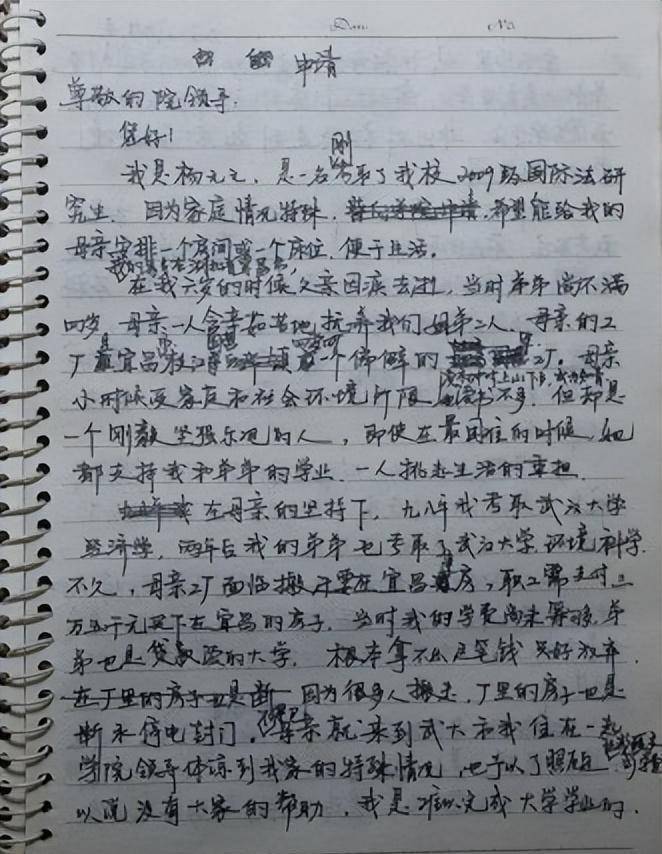 申请
尊敬的院领导:
您好!
我是杨元元,是一名刚考取了我校2009级国际法研
究生。因为家庭情况特殊,希望能给我的
母亲安排一个房间或一个床位,便于生活。
在我六岁的时候父亲因疾去逝,当时弟弟尚不满
四岁,母亲一人含辛茹苦地抚养我们姐弟二人。母亲的工
厂是宜昌 一个偏僻的 工厂。母亲
小时候受家庭和社会环境所限 读书不多,但却是
一个刚毅坚强乐观的人,即使在最困难的时候,她
都支持我和弟弟的学业,一人挑起生活的重担。
在母亲的坚持下,九八年我考取武汉大学
经济学,两年后我的弟弟也考取了武汉大学环境科学。
不久,母亲工厂面临搬 要在宜昌 房,职工需支付三
万五千元买下在宜昌的房子。当时我的学费尚未筹够,弟
弟也是贷款读的大学,根本拿不出这笔钱只好放弃。
因为很多人搬走,厂里的房子也是
断水停电封门。 母亲就来到武大和我住在一起
学院领导体谅到我家的特殊情况,也予以了照顾。
以说没有大家的帮助,我是难以完成大学学业的。